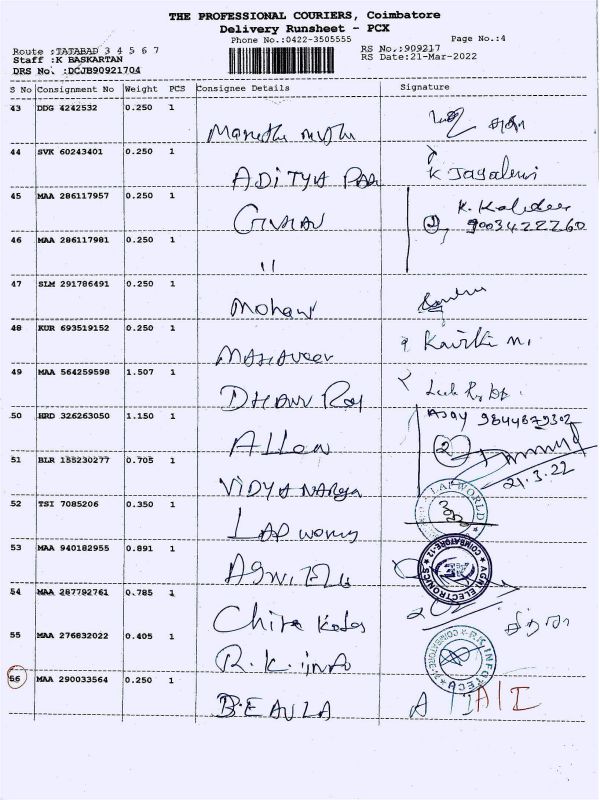 THE PROFESSIONAL COURIERS, Coimbatore
Delivery Runsheet - PCX
Phone No.:0422-3505555 Page No.:4
Route :TATABAD 3 4 5 6 7 RS No.:909217
Staff :K BASKARTAN RS Date:21-Mar-2022
DRS No. :DCJB90921704
S No Consignment No Weight PCS Consignee Details Signature
43 DDG 4242532 0.250 1
44 SVK 60243401 0.250 1
ADITYA K Jayadevi
45 MAA 286117957 0.250 1
K.
9003422260
46 MAA 286117981 0.250 1
11
47 SLM 291786491 0.250 1
Mohan
48 KUR 693519152 0.250 1
MAHAVEER
49 MAA 564259598 1.507 1
50 HRD 326263050 1.150 1
AJAY 9844879302
Allen 2
51 BLR 155230277 0.705 1
VIDYA 21.3.22
52 TSI 7085206 0.350 1
LAP WORLD
53 MAA 940182955 0.891 1
AGNI ELECTRONICS COIMBATORE-12
54 MAA 287792761 0.785 1
55 MAA 276832022 0.405 1
R.K. INFO
R.K. INFOTECH COIMBATORE
56 MAA 290033564 0.250 1
BEAULA